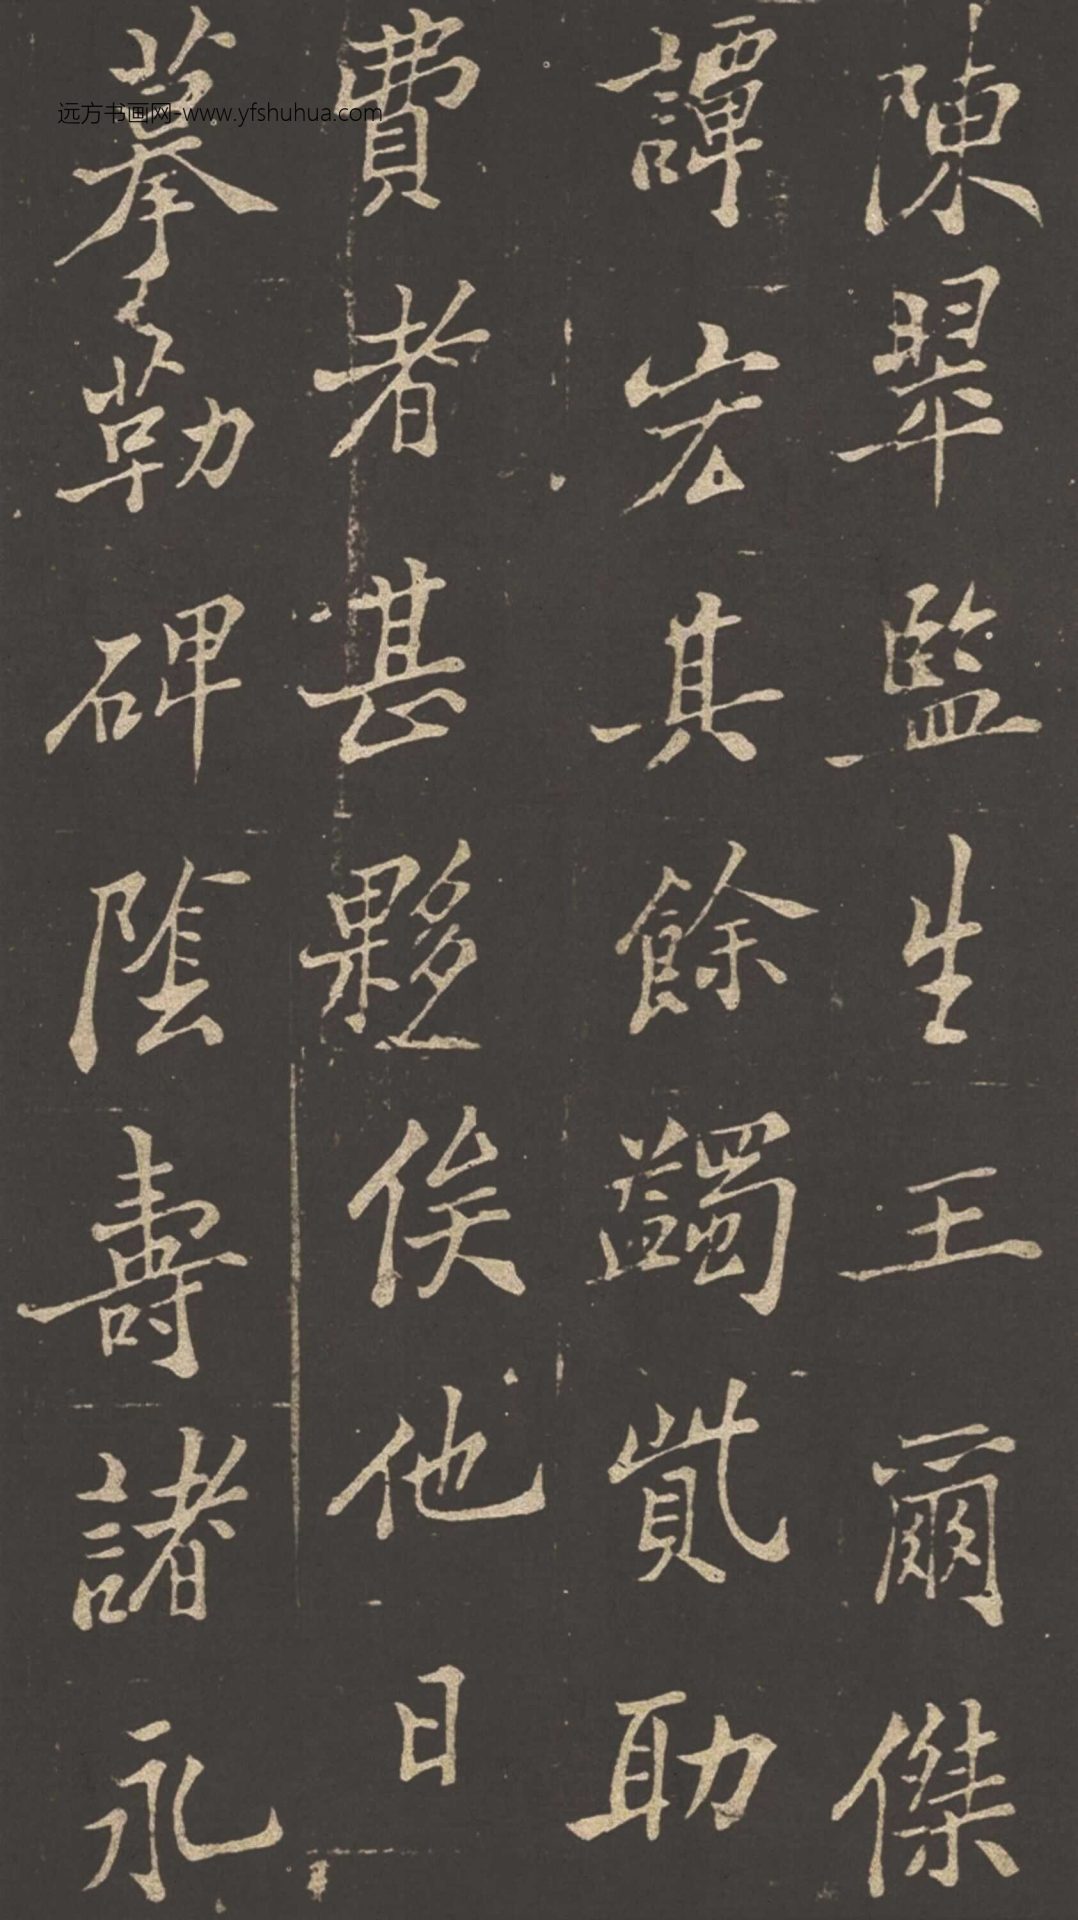 陳翠監生王爾傑
譚宏其餘蠲貲助
費者甚夥俟他日
摹勒碑陰壽諸永
远方书画网-www.yfshuhua.com